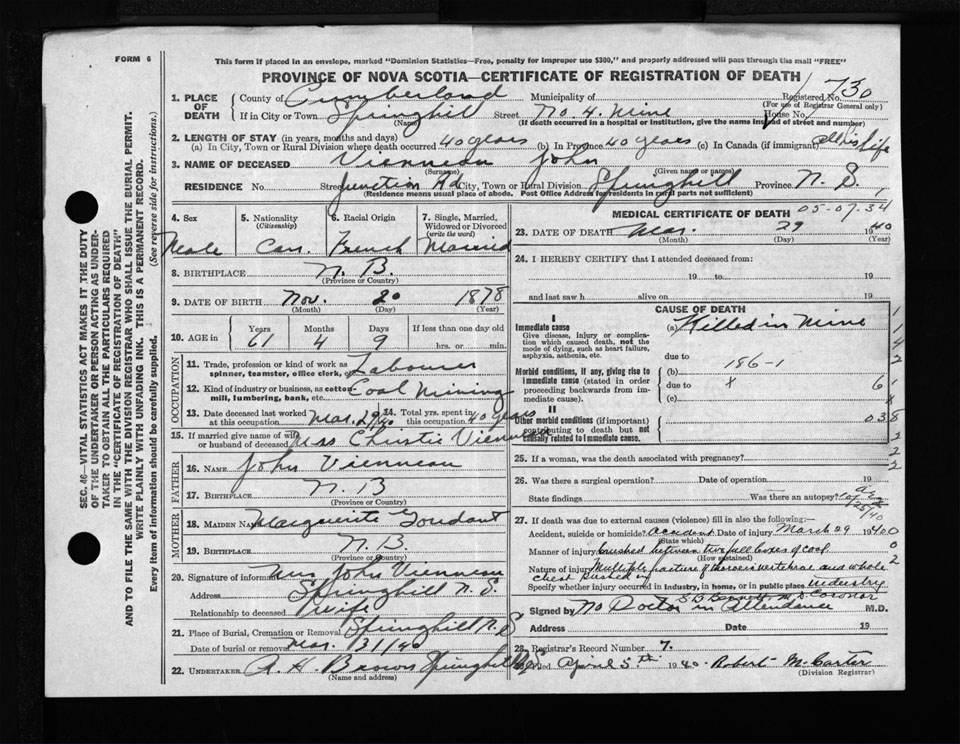 FORM 6
This form if placed in an envelope, marked "Dominion Statistics—Free, penalty for improper use $300," and properly addressed will pass through the mail "FREE"
PROVINCE OF NOVA SCOTIA—CERTIFICATE OF REGISTRATION OF DEATH
Registered No. 730
(For use of Registrar General only)
1. PLACE OF DEATH County of Cumberland Municipality of
If in City or Town Springhill Street No. 4. Mine House No.
(Name) (If death occurred in a hospital or institution, give the name instead of street and number)
2. LENGTH OF STAY (in years, months and days)
(a) In City, Town or Rural Division where death occurred 40 years (b) In Province 40 years (c) In Canada (if immigrant) all his life
3. NAME OF DECEASED Vienneau John
(Surname) (Given name or names)
RESIDENCE No. Street Junction Rd City, Town or Rural Division Springhill Province N. S.
(Residence means usual place of abode. Post Office Address for residents in rural parts not sufficient)
4. Sex Male
5. Nationality (Citizenship) Can.
6. Racial Origin French
7. Single, Married, Widowed or Divorced (write the word) Married
8. BIRTHPLACE N. B.
(Province or Country)
9. DATE OF BIRTH Nov. 20 1878
(Month) (Day) (Year)
10. AGE in Years Months Days If less than one day old
61 4 9 hrs. or min.
OCCUPATION
11. Trade, profession or kind of work as spinner, teamster, office clerk, etc. Labourer
12. Kind of industry or business, as cotton mill, lumbering, bank, etc. Coal Mining
13. Date deceased last worked at this occupation Mar. 29/40
14. Total yrs. spent in this occupation 40 years
15. If married give name of wife or husband of deceased Mrs Christie Vienneau
FATHER
16. NAME John Vienneau
17. BIRTHPLACE N. B
(Province or Country)
MOTHER
18. MAIDEN NAME Marguerite
19. BIRTHPLACE N. B.
(Province or Country)
20. Signature of informant Mrs. John Vienneau
Address Springhill N. S.
Relationship to deceased wife
21. Place of Burial, Cremation or Removal Springhill N. S
Date of burial or removal Mar. 31/40
22. UNDERTAKER A. H. Brown Springhill
(Name and address)
MEDICAL CERTIFICATE OF DEATH 05-07.34
23. DATE OF DEATH Mar. 29 1940
(Month) (Day) (Year)
24. I HEREBY CERTIFY that I attended deceased from:
19 to 19
and last saw h alive on 19
CAUSE OF DEATH
I
Immediate cause (a) Killed in Mine
Give disease, injury or complication which caused death, not the mode of dying, such as heart failure, asphyxia, asthenia, etc.
due to
Morbid conditions, if any, giving rise to immediate cause (stated in order proceeding backwards from immediate cause). (b) 186-1
due to x
(c)
II
Other morbid conditions (if important) contributing to death but not causally related to immediate cause.
1
1
4
2
6
1
x
038
2
2
2
25. If a woman, was the death associated with pregnancy?
26. Was there a surgical operation? Date of operation 19
State findings Was there an autopsy?
27. If death was due to external causes (violence) fill in also the following:—
Accident, suicide or homicide? accident Date of injury March 29 1940
(State which)
Manner of injury crushed between two full boxes of coal
(How sustained)
Nature of injury Multiple fracture of thoracic vertebrae and whole chest pushed in
Specify whether injury occurred in industry, in home, or in public place industry
S B Bennett M D Coronor
Signed by No Doctor in attendance M.D.
Address Date 19
28. Registrar's Record Number 7.
Filed April 5th 1940 Robert McCarter
(Division Registrar)
SEC. 46—VITAL STATISTICS ACT MAKES IT THE DUTY
OF THE UNDERTAKER OR PERSON ACTING AS UNDER-
TAKER TO OBTAIN ALL THE PARTICULARS REQUIRED
IN THE "CERTIFICATE OF REGISTRATION OF DEATH"
AND TO FILE THE SAME WITH THE DIVISION REGISTRAR WHO SHALL ISSUE THE BURIAL PERMIT.
WRITE PLAINLY WITH UNFADING INK. THIS IS A PERMANENT RECORD.
Every item of information should be carefully supplied. (See reverse side for instructions.)